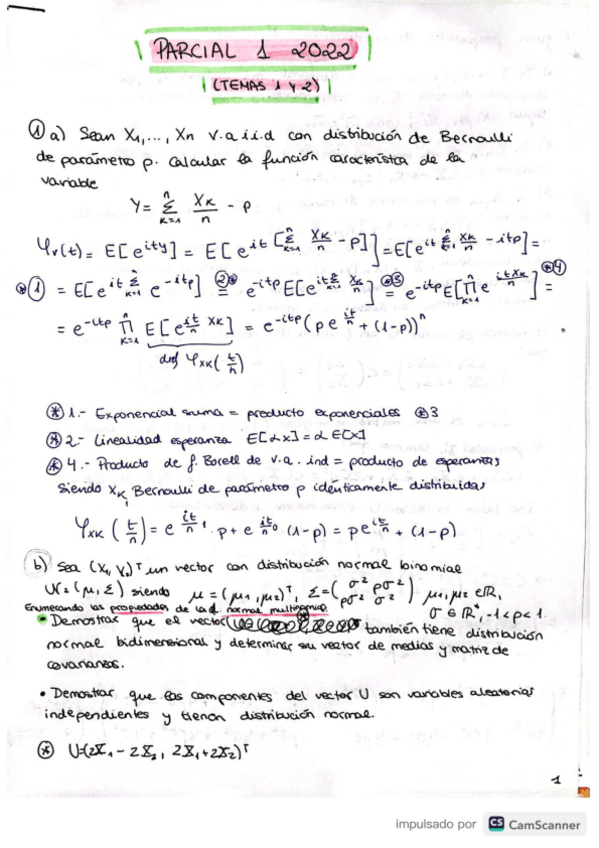 PARCIAL 1 2022
(TEMAS 1 Y 2)
① a) Sean X₁, ..., Xn v.a i.i.d con distribución de Bernoulli
de parámetro p. Calcular la función característica de la
variable
Y = Σ_{k=1}^{n} Xk/n - p
φ_Y(t) = E[e^{itY}] = E[e^{it[Σ_{k=1}^{n} Xk/n - p]}] = E[e^{it Σ_{k=1}^{n} Xk/n - itp}] =
⊛① = E[e^{it Σ_{k=1}^{n}} e^{-itp}] ②⊛= e^{-itp} E[e^{it Σ_{k=1}^{n} Xk/n}] ⊛3= e^{-itp} E[∏_{k=1}^{n} e^{itXk/n}] ⊛4=
= e^{-itp} ∏_{k=1}^{n} E[e^{i t/n Xk}] = e^{-itp} (p e^{it/n} + (1-p))^n
def φ_{Xk}(t/n)
⊛ 1.- Exponencial suma = producto exponenciales ⊛3
⊛ 2.- Linealidad esperanza E[αx] = αE[x]
⊛ 4.- Producto de f. Borell de v.a. ind = producto de esperanzas
siendo Xk Bernoulli de parámetro p idénticamente distribuidas
φ_{Xk}(t/n) = e^{it/n · 1} · p + e^{it/n · 0} (1-p) = p e^{it/n} + (1-p)
b) Sea (X₁, X₂)ᵀ un vector con distribución normal binomial
N₂(μ, Σ) siendo μ = (μ₁, μ₂)ᵀ, Σ = (σ² ρσ² ρσ² σ²) μ₁, μ₂ ∈ ℝ,
σ ∈ ℝ⁺, -1 < ρ < 1.
Enumerando las propiedades de la d normal multinomial
• Demostrar que el vector también tiene distribución
normal bidimensional y determinar su vector de medias y matriz de
covarianzas.
• Demostrar que las componentes del vector U son variables aleatorias
independientes y tienen distribución normal.
⊛ U = (2X₁ - 2X₂, 2X₁ + 2X₂)ᵀ
1
impulsado por CS CamScanner